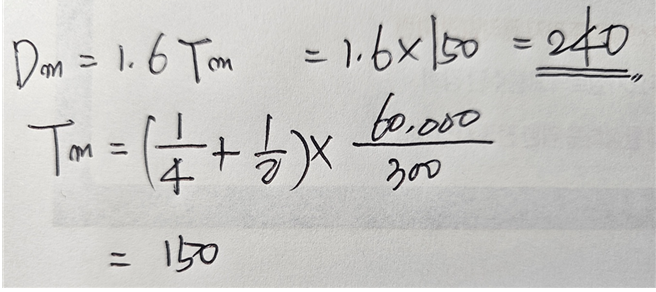 Dm = 1.6 Tm = 1.6 × 150 = 240
Tm = (1/4 + 1/2) × 60,000/300
= 150